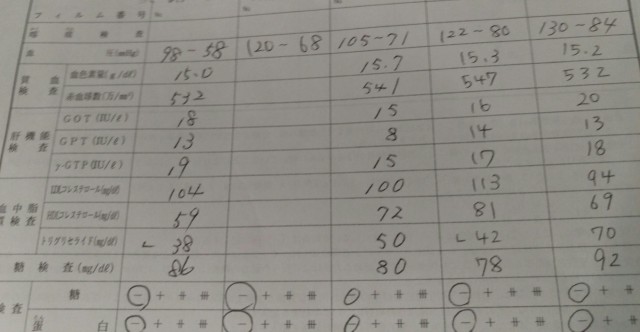 フィルム番号 No. No.
検査
(mmHg) 98-58 120-68 105-71 122-80 130-84
貧血検査 血色素量(g/dℓ) 15.0 15.7 15.3 15.2
赤血球数(万/m㎥) 532 541 547 532
肝機能検査 GOT(IU/ℓ) 18 15 16 20
GPT(IU/ℓ) 13 8 14 13
γ-GTP(IU/ℓ) 19 15 17 18
血中脂質検査 LDLコレステロール(mg/dℓ) 104 100 113 94
HDLコレステロール(mg/dℓ) 59 72 81 69
トリグリセライド(mg/dℓ) L 38 50 L 42 70
糖検査(mg/dℓ) 86 80 78 92
検査 糖 - + ++ +++ - + ++ +++ - + ++ +++ - + ++ +++ - + ++
蛋白 - + ++ +++ - + ++ +++ - + ++ +++ - + ++ +++ - + ++